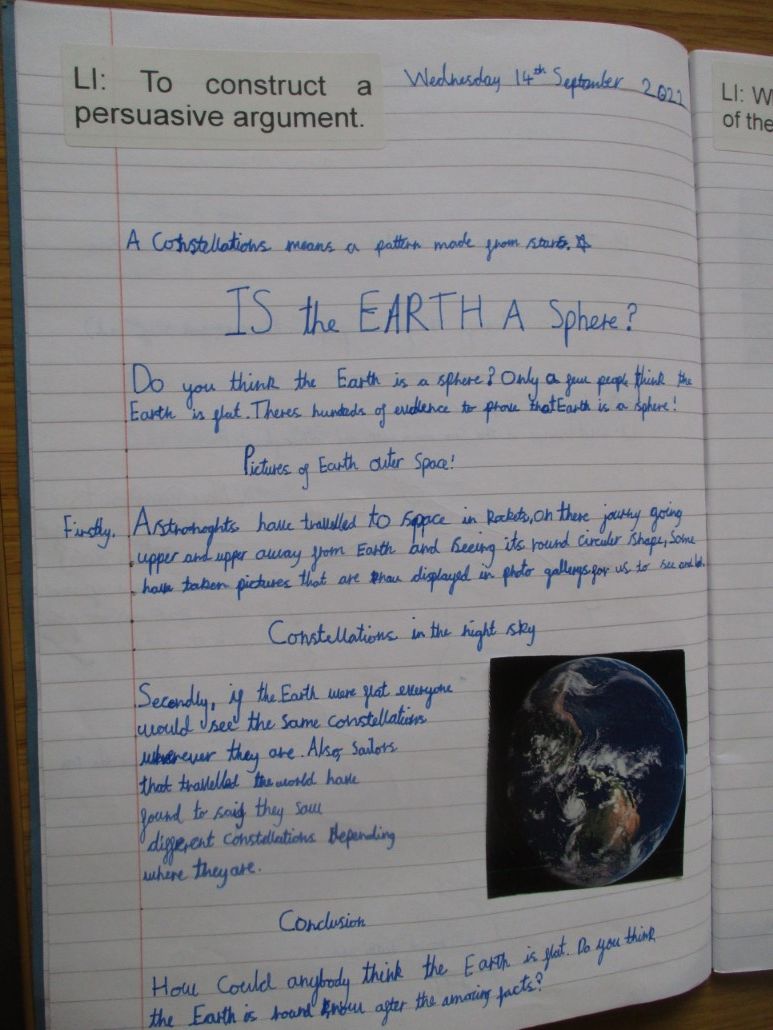 LI: To construct a
persuasive argument.
Wednesday 14th September 2022
LI: W
of the
A Constellations means a pattern made from stars.
IS the EARTH A Sphere?
Do you think the Earth is a sphere? Only a few people think the
Earth is flat. Theres hundeds of evidence to prove that Earth is a sphere!
Pictures of Earth outer Space!
Firstly. Astronoghts have travelled to space in Rockets, On there journy going
upper and upper away from Earth and seeing its round circular shape, Some
have taken pictures that are displayed in photo gallerys for us to see and
Constellations in the night sky
Secondly, if the Earth were flat everyone
would see the same constellations
wherever they are. Also, Sailors
that travelled the world have
found to said they saw
different constellations Depending
where they are.
Conclusion
How Could anybody think the Earth is flat. Do you think
the Earth is round know after the amazing facts?